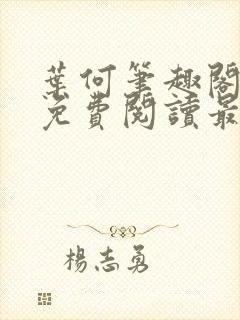 葉何筆趣閣
免費閱讀最
楊志勇